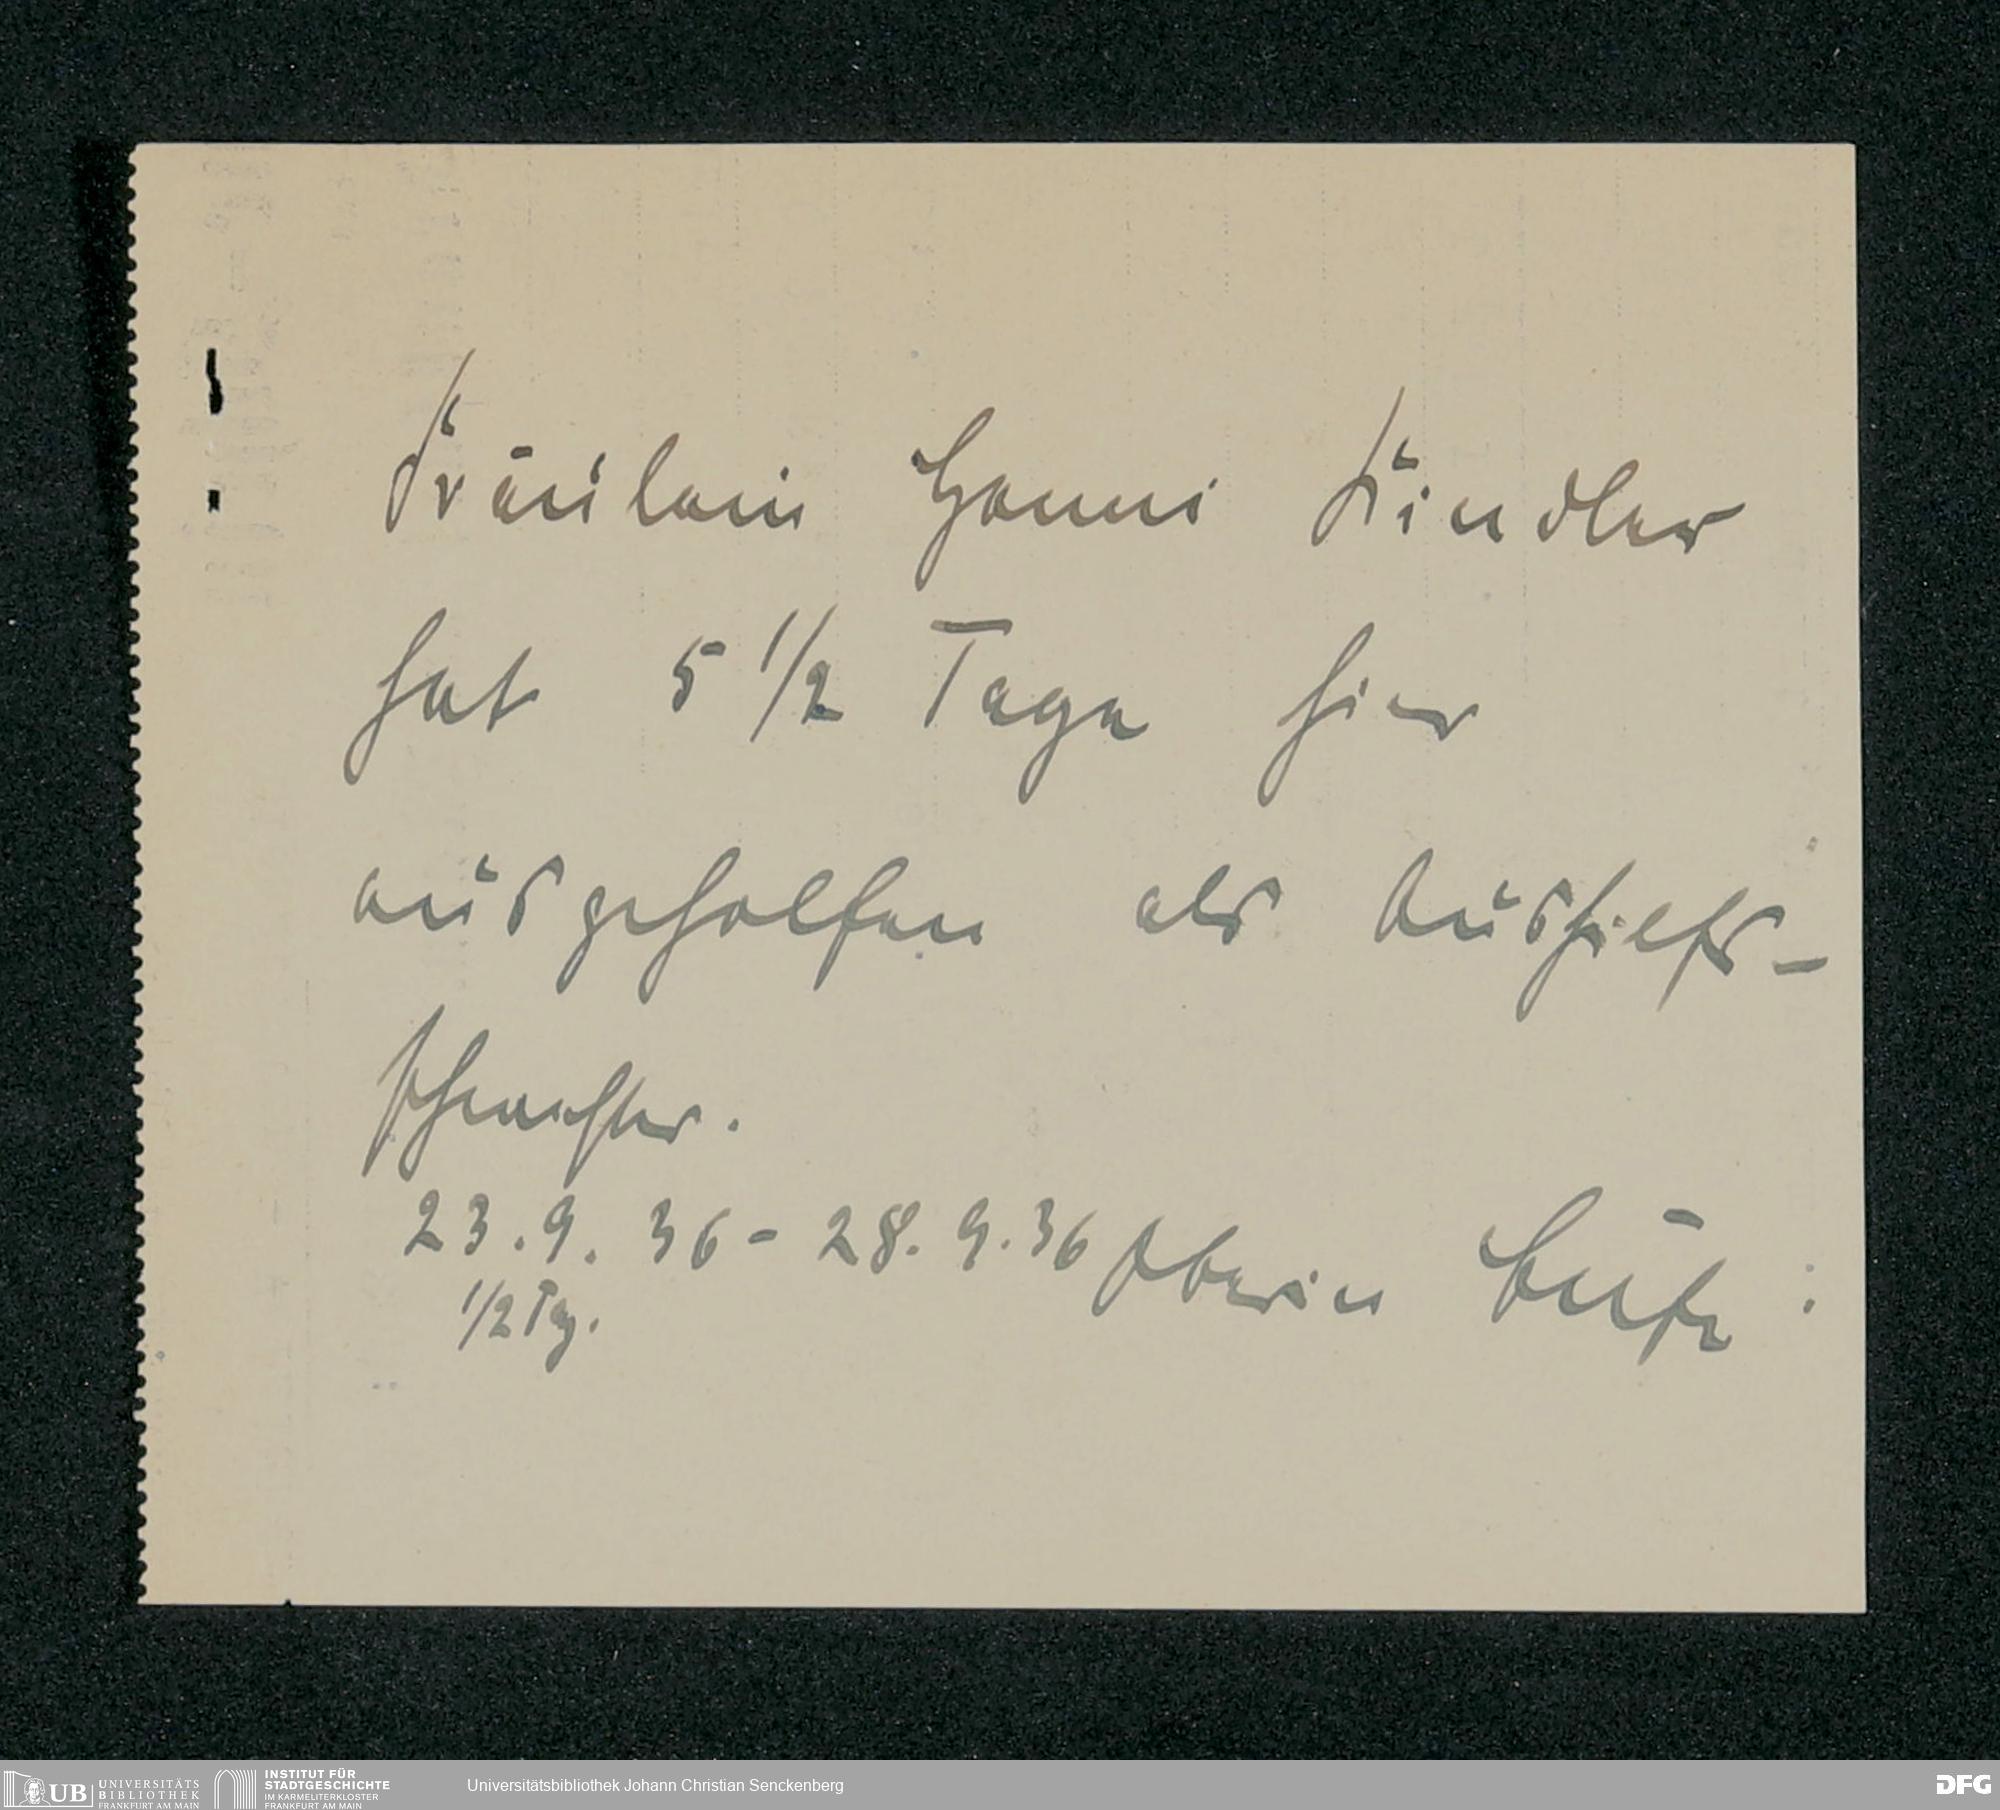 Fräulein Hanni Kindler
hat 5 1/2 Tage hier
ausgeholfen als Aushilfs-
schwester.
23.9.36 - 28.9.36 Oberin
1/2 Tag.
UB UNIVERSITÄTS
BIBLIOTHEK
FRANKFURT AM MAIN
INSTITUT FÜR
STADTGESCHICHTE
IM KARMELITERKLOSTER
FRANKFURT AM MAIN
Universitätsbibliothek Johann Christian Senckenberg
DFG